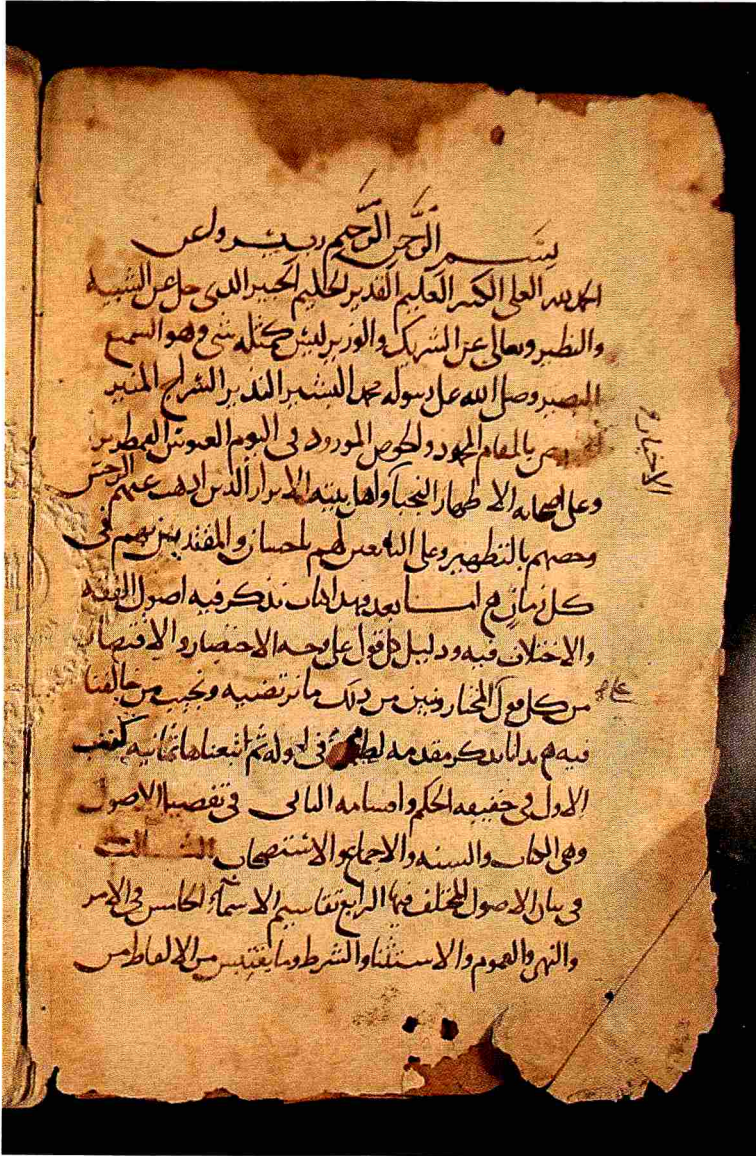 بسم الله الرحمن الرحيم رب يسر وأعن
الحمد لله العلي الكبير العليم القدير الحكيم الخبير الذي جل عن الشبيه
والنظير وتعالى عن الشريك والوزير ليس كمثله شيء وهو السميع
البصير وصلى الله على رسوله محمد البشير النذير السراج المنير
المخصوص بالمقام المحمود والحوض المورود في اليوم العبوس القمطرير
وعلى أصحابه الأطهار النجباء وأهل بيته الأبرار الذين أذهب عنهم الرجس
وخصهم بالتطهير وعلى التابعين لهم بإحسان والمقتدين بهم في
كل زمان أما بعد فهذا كتاب نذكر فيه أصول الفقه
والاختلاف فيه ودليل كل قول على وجه الاختصار والاقتصار
من كل قول المختار ونبين من ذلك ما نرتضيه ونجيب من خالفنا
فيه بدأنا بذكر مقدمة لطيفة في أوله ثم أتبعناها ثمانية
الأول في حقيقة الحكم وأقسامه الثاني في تفصيل الأصول
وهي الكتاب والسنة والإجماع والاستصحاب الثالث
في بيان الأصول المختلف فيها الرابع تقاسيم الأسماء الخامس في الأمر
والنهي والعموم والاستثناء والشرط وما يقتبس من الألفاظ من